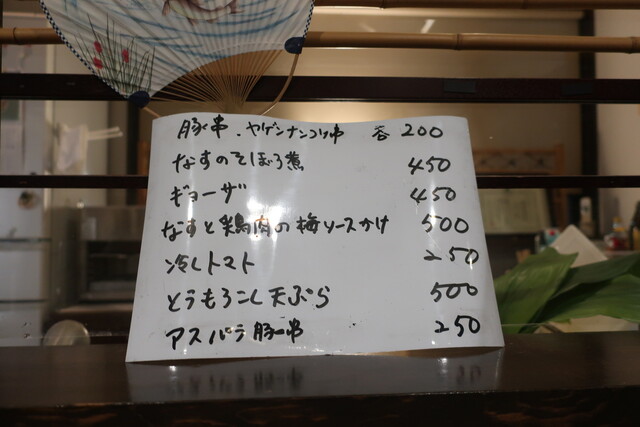 豚串・ヤゲンナンコツ串 各 200
なすのそぼろ煮 450
ギョーザ 450
なすと鶏肉の梅ソースかけ 500
冷しトマト 250
とうもろこし天ぷら 500
アスパラ豚串 250